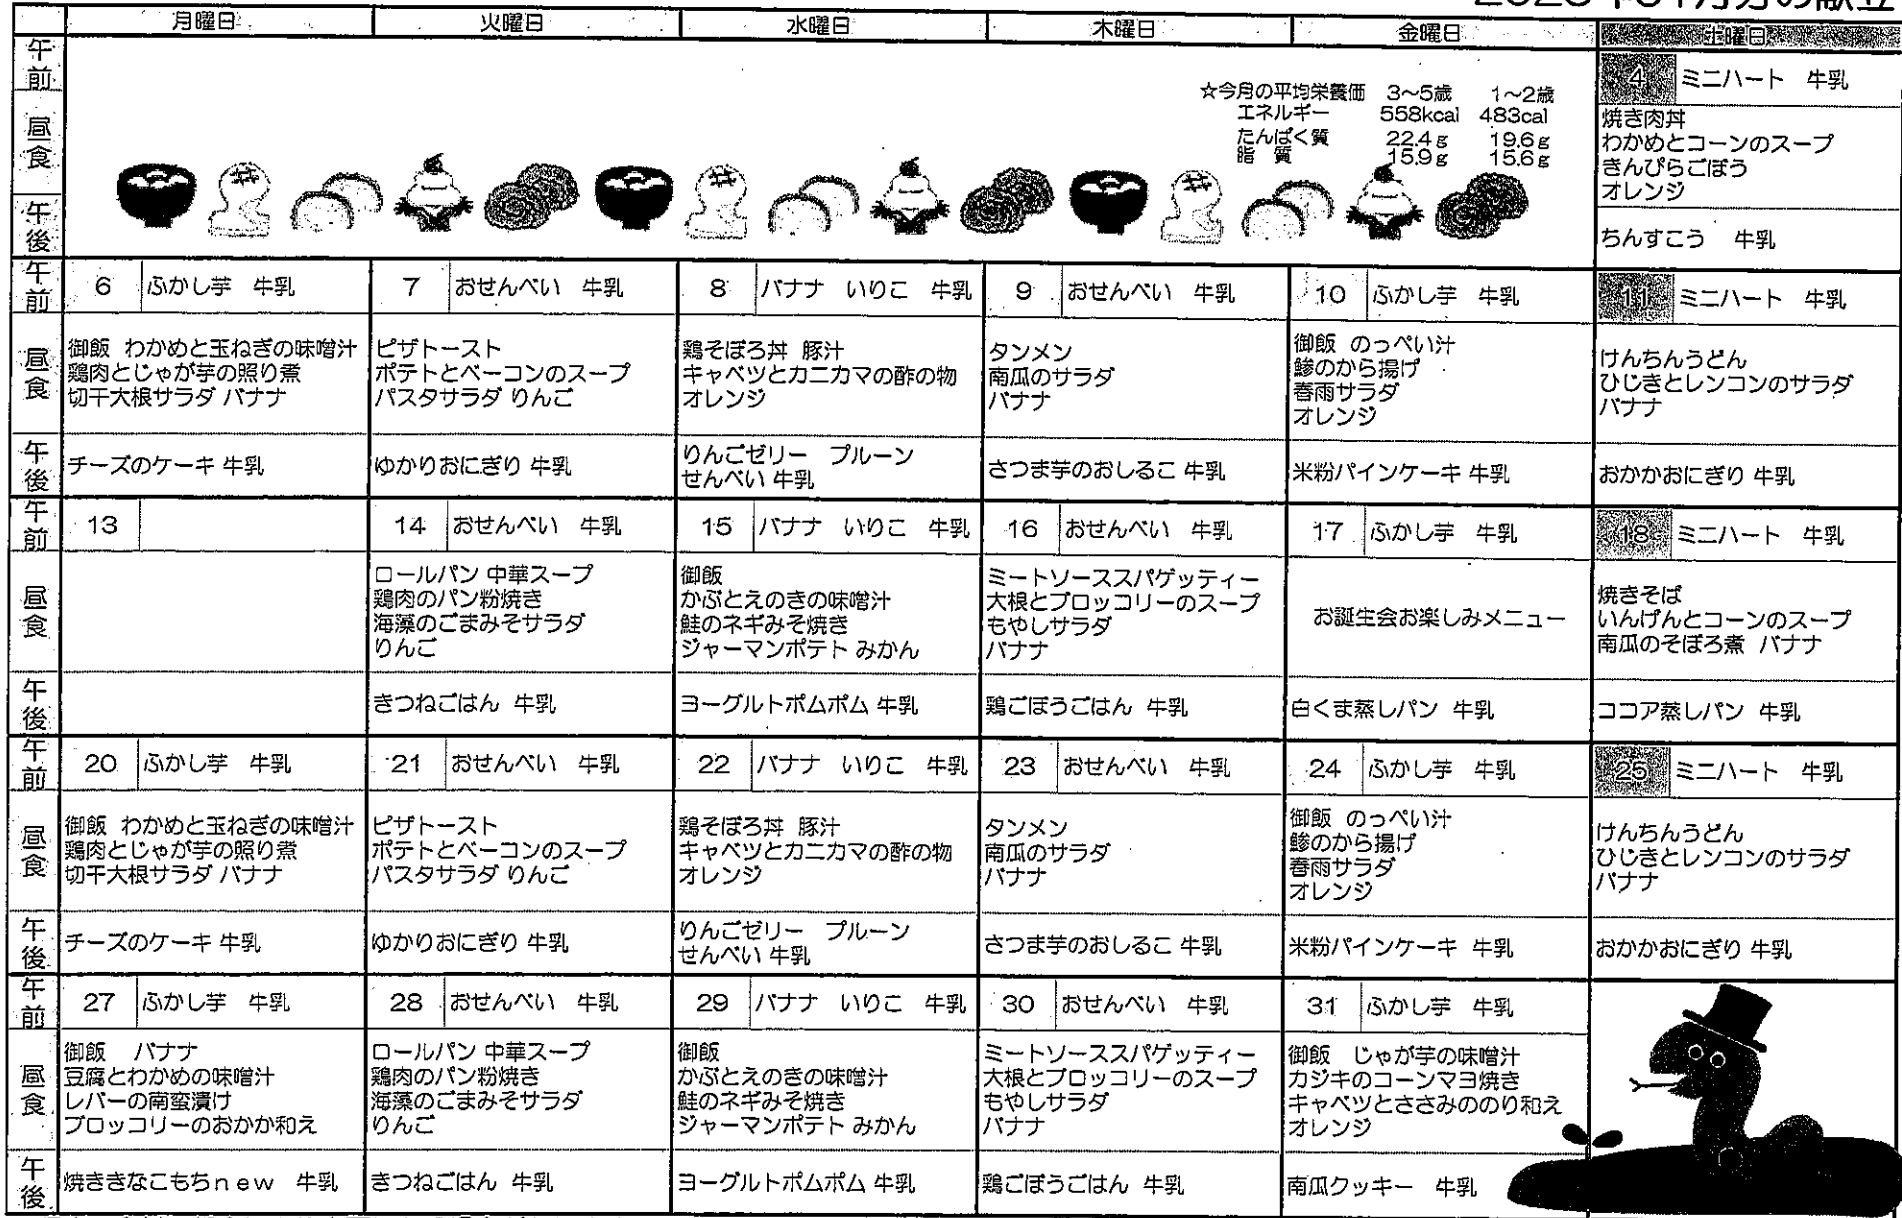 月曜日 火曜日 水曜日 木曜日 金曜日 土曜日
午前
☆今月の平均栄養価 3～5歳 1～2歳
エネルギー 558kcal 483cal
たんぱく質 22.4g 19.6g
脂 質 15.9g 15.6g
4 ミニハート 牛乳
昼食
焼き肉丼
わかめとコーンのスープ
きんぴらごぼう
オレンジ
午後
ちんすこう 牛乳
午前
6 ふかし芋 牛乳
7 おせんべい 牛乳
8 バナナ いりこ 牛乳
9 おせんべい 牛乳
10 ふかし芋 牛乳
11 ミニハート 牛乳
昼食
御飯 わかめと玉ねぎの味噌汁
鶏肉とじゃが芋の照り煮
切干大根サラダ バナナ
ピザトースト
ポテトとベーコンのスープ
パスタサラダ りんご
鶏そぼろ丼 豚汁
キャベツとカニカマの酢の物
オレンジ
タンメン
南瓜のサラダ
バナナ
御飯 のっぺい汁
鯵のから揚げ
春雨サラダ
オレンジ
けんちんうどん
ひじきとレンコンのサラダ
バナナ
午後
チーズのケーキ 牛乳
ゆかりおにぎり 牛乳
りんごゼリー プルーン
せんべい 牛乳
さつま芋のおしるこ 牛乳
米粉パインケーキ 牛乳
おかかおにぎり 牛乳
午前
13
14 おせんべい 牛乳
15 バナナ いりこ 牛乳
16 おせんべい 牛乳
17 ふかし芋 牛乳
18 ミニハート 牛乳
昼食
ロールパン 中華スープ
鶏肉のパン粉焼き
海藻のごまみそサラダ
りんご
御飯
かぶとえのきの味噌汁
鮭のネギみそ焼き
ジャーマンポテト みかん
ミートソーススパゲッティー
大根とブロッコリーのスープ
もやしサラダ
バナナ
お誕生会お楽しみメニュー
焼きそば
いんげんとコーンのスープ
南瓜のそぼろ煮 バナナ
午後
きつねごはん 牛乳
ヨーグルトポムポム 牛乳
鶏ごぼうごはん 牛乳
白くま蒸しパン 牛乳
ココア蒸しパン 牛乳
午前
20 ふかし芋 牛乳
21 おせんべい 牛乳
22 バナナ いりこ 牛乳
23 おせんべい 牛乳
24 ふかし芋 牛乳
25 ミニハート 牛乳
昼食
御飯 わかめと玉ねぎの味噌汁
鶏肉とじゃが芋の照り煮
切干大根サラダ バナナ
ピザトースト
ポテトとベーコンのスープ
パスタサラダ りんご
鶏そぼろ丼 豚汁
キャベツとカニカマの酢の物
オレンジ
タンメン
南瓜のサラダ
バナナ
御飯 のっぺい汁
鯵のから揚げ
春雨サラダ
オレンジ
けんちんうどん
ひじきとレンコンのサラダ
バナナ
午後
チーズのケーキ 牛乳
ゆかりおにぎり 牛乳
りんごゼリー プルーン
せんべい 牛乳
さつま芋のおしるこ 牛乳
米粉パインケーキ 牛乳
おかかおにぎり 牛乳
午前
27 ふかし芋 牛乳
28 おせんべい 牛乳
29 バナナ いりこ 牛乳
30 おせんべい 牛乳
31 ふかし芋 牛乳
昼食
御飯 バナナ
豆腐とわかめの味噌汁
レバーの南蛮漬け
ブロッコリーのおかか和え
ロールパン 中華スープ
鶏肉のパン粉焼き
海藻のごまみそサラダ
りんご
御飯
かぶとえのきの味噌汁
鮭のネギみそ焼き
ジャーマンポテト みかん
ミートソーススパゲッティー
大根とブロッコリーのスープ
もやしサラダ
バナナ
御飯 じゃが芋の味噌汁
カジキのコーンマヨ焼き
キャベツとささみののり和え
オレンジ
午後
焼ききなこもちnew 牛乳
きつねごはん 牛乳
ヨーグルトポムポム 牛乳
鶏ごぼうごはん 牛乳
南瓜クッキー 牛乳